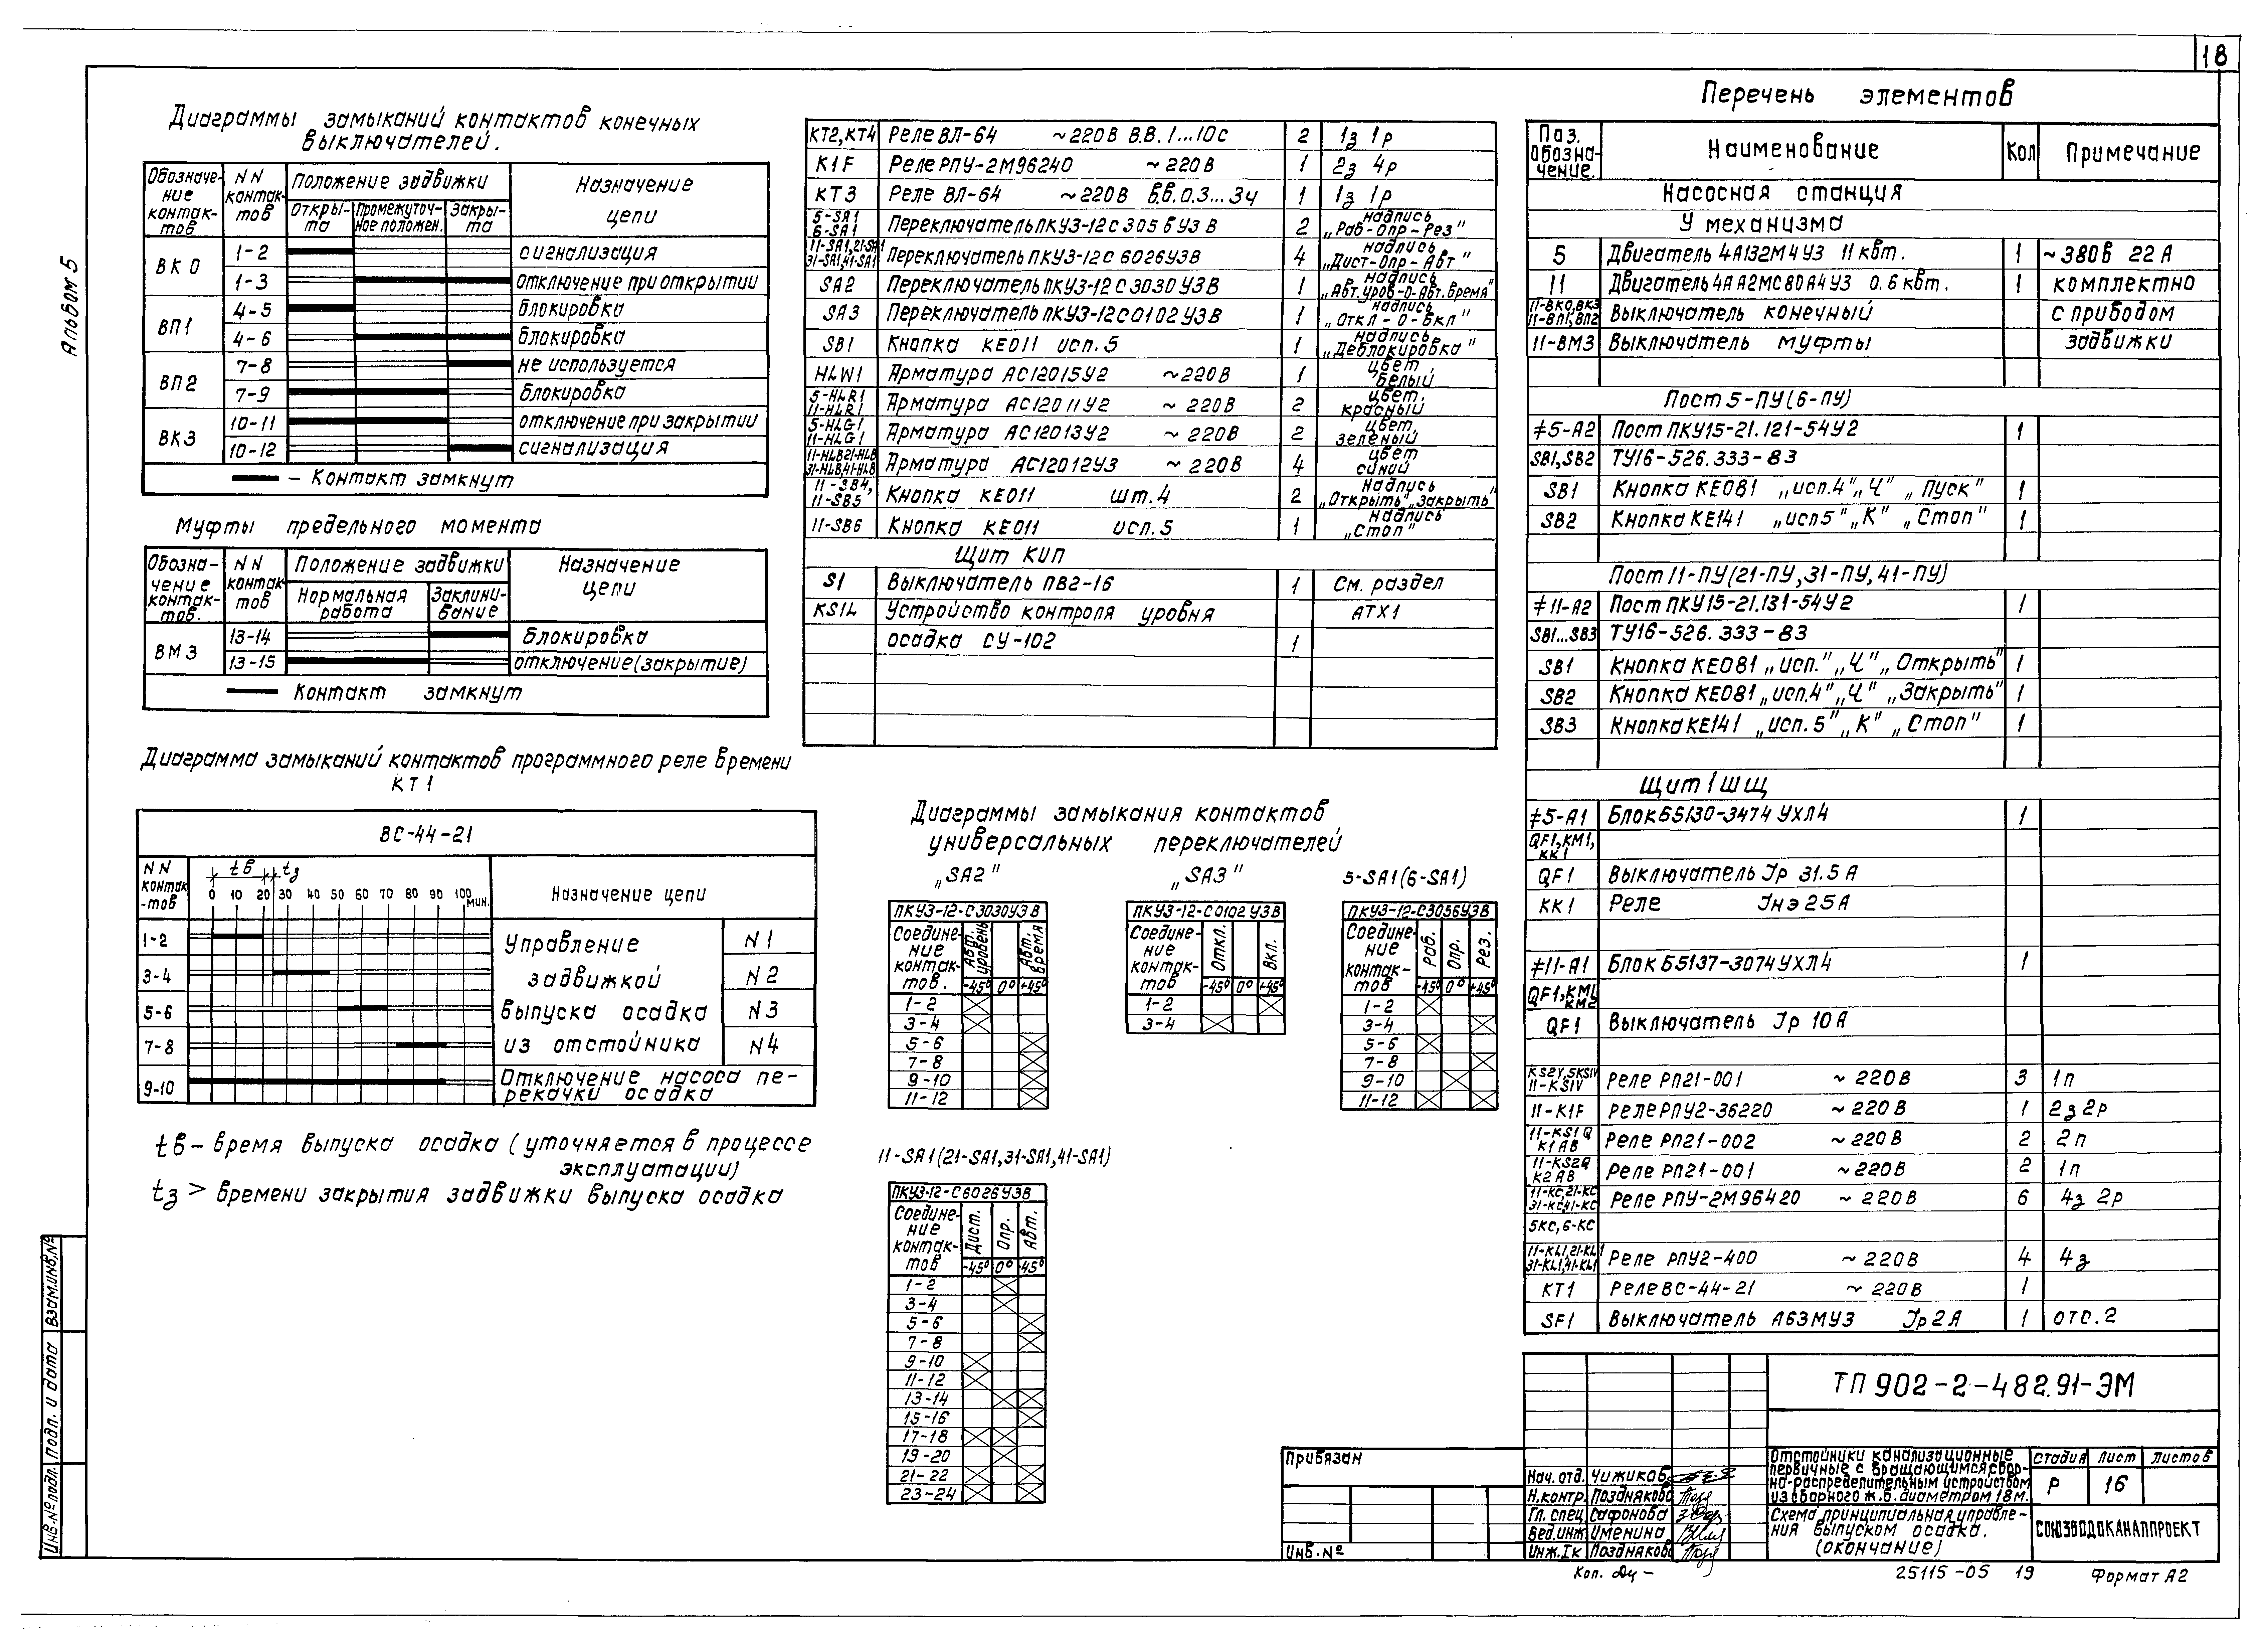 18
Альбом 5
Диаграммы замыканий контактов конечных
выключателей.
Обозначе-
ние
контак-
тов
NN
контак-
тов
Положение задвижки
Откры-
та
Промежуточ-
ное положен.
Закры-
та
Назначение
цепи
ВКО
1-2 сигнализация
1-3 отключение при открытии
ВП1
4-5 блокировка
4-6 блокировка
ВП2
7-8 не используется
7-9 блокировка
ВКЗ
10-11 отключение при закрытии
10-12 сигнализация
– Контакт замкнут
Муфты предельного момента
Обозна-
чение
контак-
тов.
NN
контак-
тов
Положение задвижки
Нормальная
работа
Заклини-
вание
Назначение
цепи
ВМЗ
13-14 блокировка
13-15 отключение (закрытие)
Контакт замкнут
Диаграмма замыканий контактов программного реле времени
КТ1
ВС-44-21
NN
контак
-тов
tв tз
0 10 20 30 40 50 60 70 80 90 100 мин.
Назначение цепи
1-2 Управление N1
3-4 задвижкой N2
5-6 выпуска осадка N3
7-8 из отстойника N4
9-10 Отключение насоса пе-
рекачки осадка
tв – время выпуска осадка (уточняется в процессе
эксплуатации)
tз > времени закрытия задвижки выпуска осадка
КТ2, КТ4 Реле ВЛ-64 ~220В В.В. 1...10с 2 1з 1р
К1F Реле РПУ-2М96240 ~220В 1 2з 4р
КТ3 Реле ВЛ-64 ~220В В.В. 0.3...3ч 1 1з 1р
5-SA1
6-SA1 Переключатель ПКУ3-12С3056У3В 2 надпись
„Раб-Опр-Рез"
11-SA1, 21-SA1
31-SA1, 41-SA1 Переключатель ПКУ3-12С6026У3В 4 надпись
„Дист-Опр-Авт"
SA2 Переключатель ПКУ3-12С3030У3В 1 надпись
„Авт.уров-О-Авт.время"
SA3 Переключатель ПКУ3-12С0102У3В 1 надпись
„Откл-О-Вкл"
SB1 Кнопка КЕ011 исп.5 1 надпись
„Деблокировка"
HLW1 Арматура АС12015У2 ~220В 1 цвет
белый
5-HLR1
11-HLR1 Арматура АС12011У2 ~220В 2 цвет.
красный
5-HLG1
11-HLG1 Арматура АС12013У2 ~220В 2 цвет.
зеленый
11-HLB 21-HLB
31-HLB, 41-HLB Арматура АС12012У3 ~220В 4 цвет
синий
11-SB4,
11-SB5 Кнопка КЕ011 шт.4 2 надпись
„Открыть" „Закрыть"
11-SB6 Кнопка КЕ011 исп.5 1 надпись
„Стоп"
Щит КИП
S1 Выключатель ПВ2-16 1 См. раздел
KS1L Устройство контроля уровня АТХ1
осадка СУ-102 1
Диаграммы замыкания контактов
универсальных переключателей
„SA2"
ПКУ3-12-С3030У3В
Соедине-
ние
контак-
тов.
Авт. уровень
Авт. время
-45° 0° +45°
1-2
3-4
5-6
7-8
9-10
11-12
„SA3"
ПКУ3-12-С0102У3В
Соедине-
ние
контак-
тов
Откл. Вкл.
-45° 0° +45°
1-2
3-4
5-SA1 (6-SA1)
ПКУ3-12-С3056У3В
Соедине-
ние
контак-
тов
Раб. Опр. Рез.
-45° 0° +45°
1-2
3-4
5-6
7-8
9-10
11-12
11-SA1 (21-SA1, 31-SA1, 41-SA1)
ПКУ3-12-С6026У3В
Соедине-
ние
контак-
тов
Дист. Опр. Авт.
-45° 0° -45°
1-2
3-4
5-6
7-8
9-10
11-12
13-14
15-16
17-18
19-20
21-22
23-24
Перечень элементов
Поз.
обозна-
чение.
Наименование Кол Примечание
Насосная станция
У механизма
5 Двигатель 4А132М4У3 11 квт. 1 ~380В 22А
11 Двигатель 4АА2МС80А4У3 0.6 квт. 1 комплектно
11-ВКО, ВКЗ
11-ВП1, ВП2 Выключатель конечный с приводом
11-ВМЗ Выключатель муфты задвижки
Пост 5-ПУ (6-ПУ)
≠5-А2 Пост ПКУ15-21.121-54У2 1
SB1, SB2 ТУ16-526.333-83
SB1 Кнопка КЕ081 „исп.4" „Ч" „Пуск" 1
SB2 Кнопка КЕ141 „исп5" „К" „Стоп" 1
Пост 11-ПУ (21-ПУ, 31-ПУ, 41-ПУ)
≠11-А2 Пост ПКУ15-21.131-54У2 1
SB1...SB3 ТУ16-526.333-83
SB1 Кнопка КЕ081 „исп." „Ч" „Открыть" 1
SB2 Кнопка КЕ081 „исп.4" „Ч" „Закрыть" 1
SB3 Кнопка КЕ141 „исп.5" „К" „Стоп" 1
Щит 1ШЩ
≠5-А1 Блок Б5130-3474 УХЛ4 1
QF1, KM1,
KK1
QF1 Выключатель Jр 31.5А
KK1 Реле Jнэ 25А
≠11-А1 Блок Б5137-3074 УХЛ4 1
QF1, KM1,
KM2
QF1 Выключатель Jр 10А
KS2V, 5KS1V
11-KS1V Реле РП21-001 ~220В 3 1п
11-K1F Реле РПУ2-36220 ~220В 1 2з 2р
11-KS1Q
K1AB Реле РП21-002 ~220В 2 2п
11-KS2Q
K2AB Реле РП21-001 ~220В 2 1п
11-KC, 21-KC
31-KC, 41-KC Реле РПУ-2М96420 ~220В 6 4з 2р
5KC, 6-KC
11-KL1, 21-KL1
31-KL1, 41-KL1 Реле РПУ2-400 ~220В 4 4з
КТ1 Реле ВС-44-21 ~220В 1
SF1 Выключатель А63МУ3 Jр 2А 1 отс.2
ТП 902-2-482.91-ЭМ
Отстойники канализационные
первичные с вращающимся сбор-
но-распределительным устройством
из сборного ж.б. диаметром 18м.
Стадия Лист Листов
Р 16
Схема принципиальная управле-
ния выпуском осадка.
(окончание)
СОЮЗВОДОКАНАЛПРОЕКТ
Нач. отд. Чижиков
Н.контр. Позднякова
Гл. спец. Сафонова
Вед.инж. Именина
Инж. Iк Позднякова
Привязан
Инв.№
Взам.инв.№
Подп. и дата
Инв.№ подл.
Коп.
25115-05 19
Формат А2